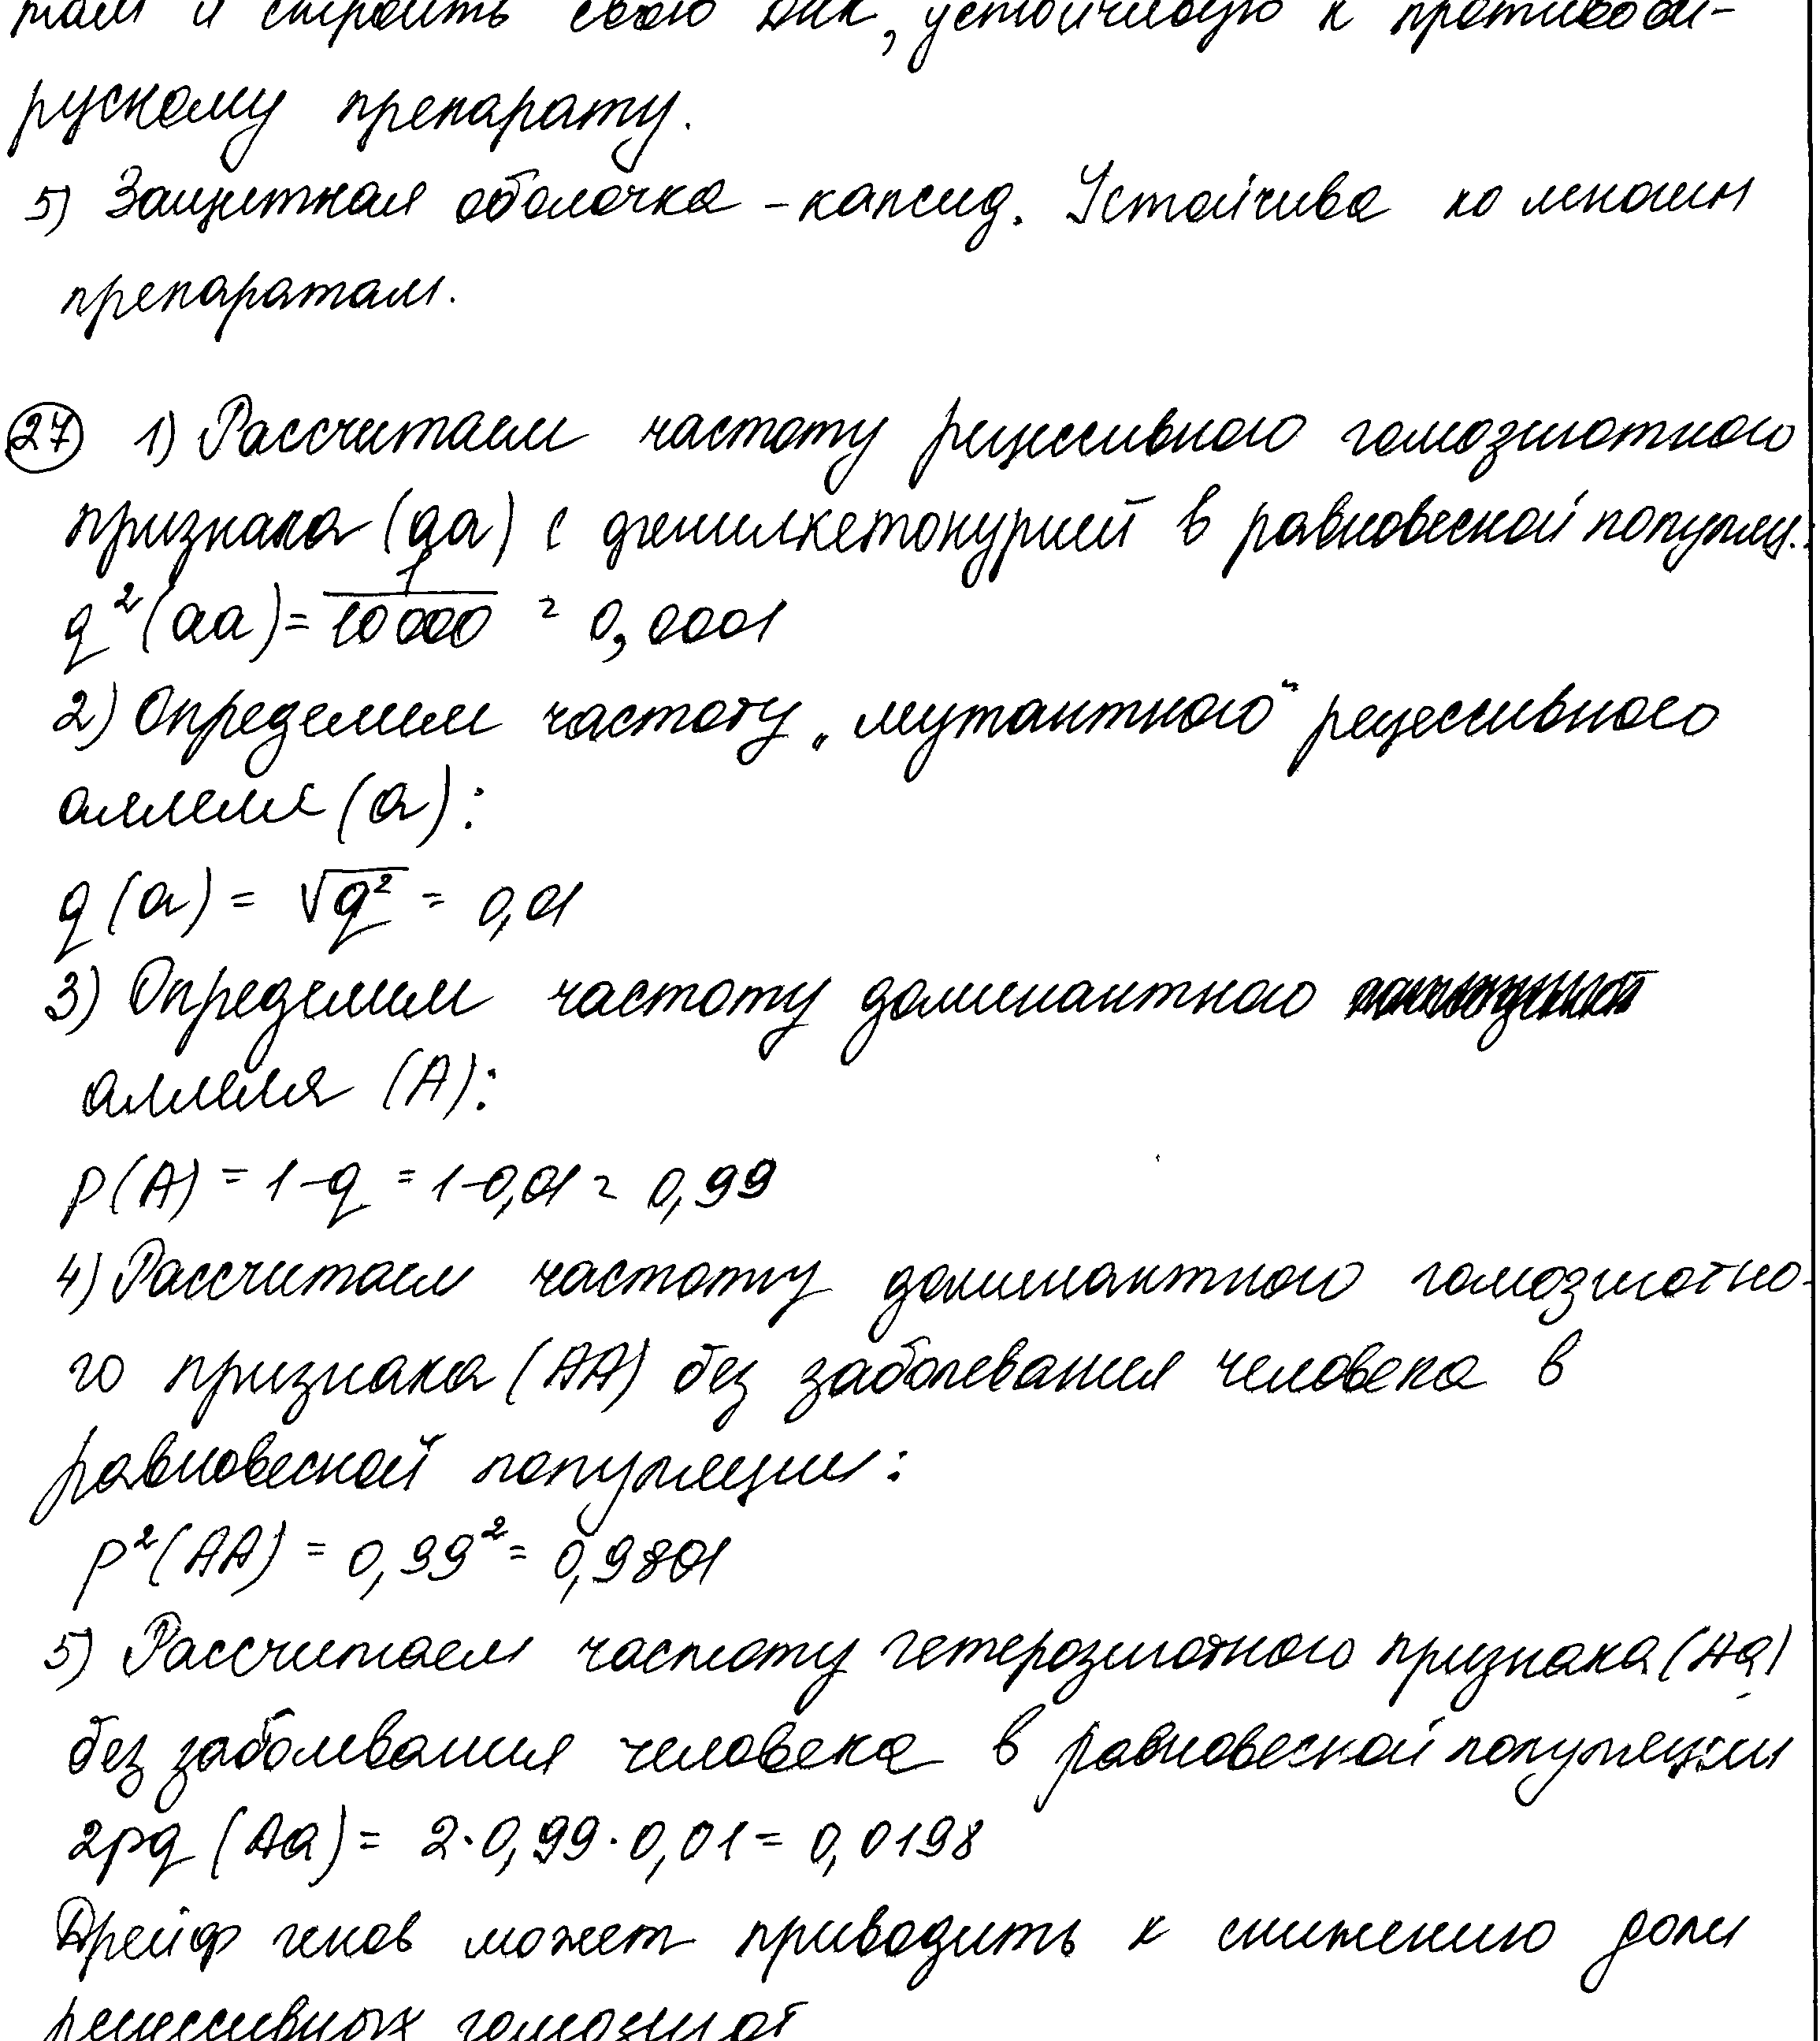 там и строить свою ДНК, устойчивую к противови-
рускому препарату.
5) Защитная оболочка - капсид. Устойчива ко многим
препаратам.
27 1) Рассчитаем частоту рецессивного гомозиготного
признака (aa) с фенилкетонурией в равновесной популяц.:
q²(aa) = 1/10000 = 0,0001
2) Определим частоту „мутантного" рецессивного
аллеля (a):
q(a) = √q² = 0,01
3) Определим частоту доминантного
аллеля (A):
p(A) = 1-q = 1-0,01 = 0,99
4) Рассчитаем частоту доминантного гомозиготно-
го признака (AA) без заболевания человека в
равновесной популяции:
p²(AA) = 0,99² = 0,9801
5) Рассчитаем частоту гетерозиготного признака (Aa)
без заболевания человека в равновесной популяции
2pq (Aa) = 2·0,99·0,01 = 0,0198
Дрейф генов может приводить к снижению доли
рецессивных гомозигот